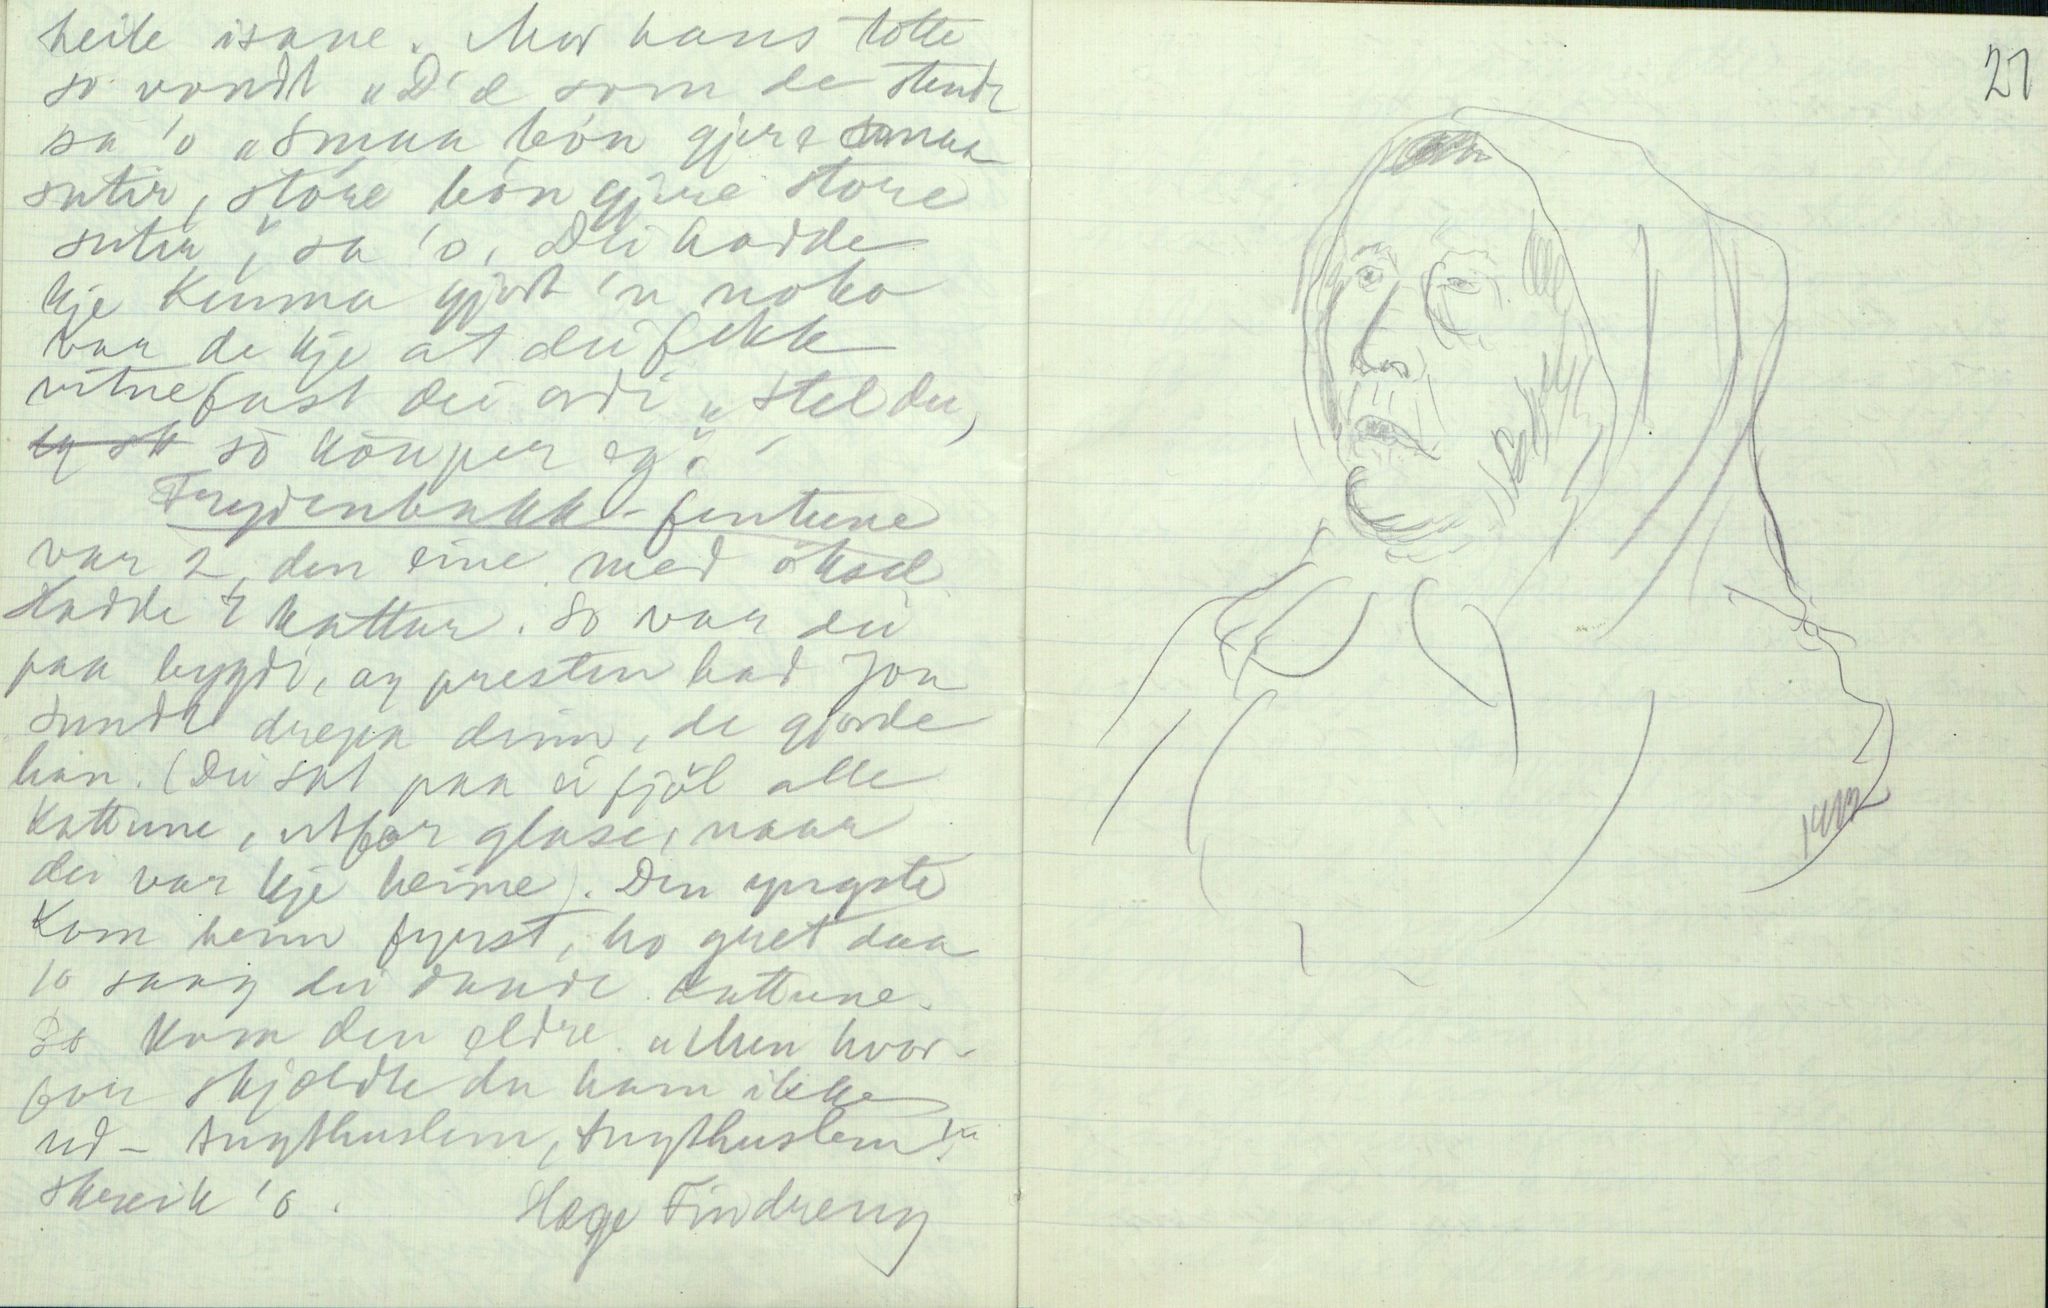 heile isane. Mor hans totte
so vondt „D'æ som de stend
sa 'o „Smaa bón gjere smaa
sutir, store bón gjere store
sutir", sa 'o, Dei hadde
kje kunna gjort 'n noko
var de kje at dei fekk
vitnefast dei ordi „Stel du,
so köuper eg".
Frydenbakk-fentune
var 2, den eine med
Hadde kattur. So var dei
paa bygdi, og presten bad Jon
Sundt drepa deim, de gjorde
han. (Dei sat paa ei fjöl alle
kattune, utfor glase, naar
dei var kje heime). Den yngste
kom heim fyrst, ho gret daa
'o saag dei daude kattune.
So kom den eldre. „Men hvor-
for skjældte du ham ikke
ud - tugthuslem, tugthuslem!"
skreik 'o.
Hæge Findreng
27